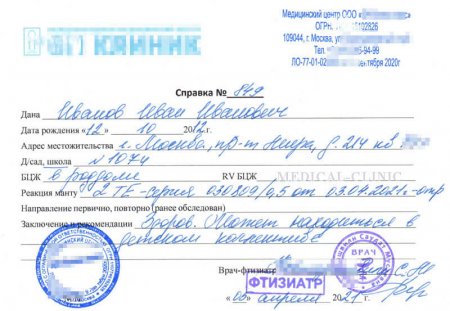 Медицинский центр ООО
ОГРН
109044, г. Москва,
Тел. 6-94-99
ЛО-77-01-02 сентября 2020г
КЛИНИК
Справка № 879
Дана Иванов Иван Иванович
Дата рождения «12» 10 2012 г.
Адрес местожительства г. Москва, пр-т Мира, д. 214 кв
Д/сад, школа N 1074
БЦЖ в роддоме RV БЦЖ MEDICAL-CLINIC
Реакция манту 2 ТЕ-серия 030809/0,5 от 03.04.2021г-отр
Направление первично, повторно (ранее обследован)
Заключение и рекомендации Здоров. Может находиться в
детском коллективе
Врач-фтизиатр
ВРАЧ
ФТИЗИАТР
апреля 2021 г.